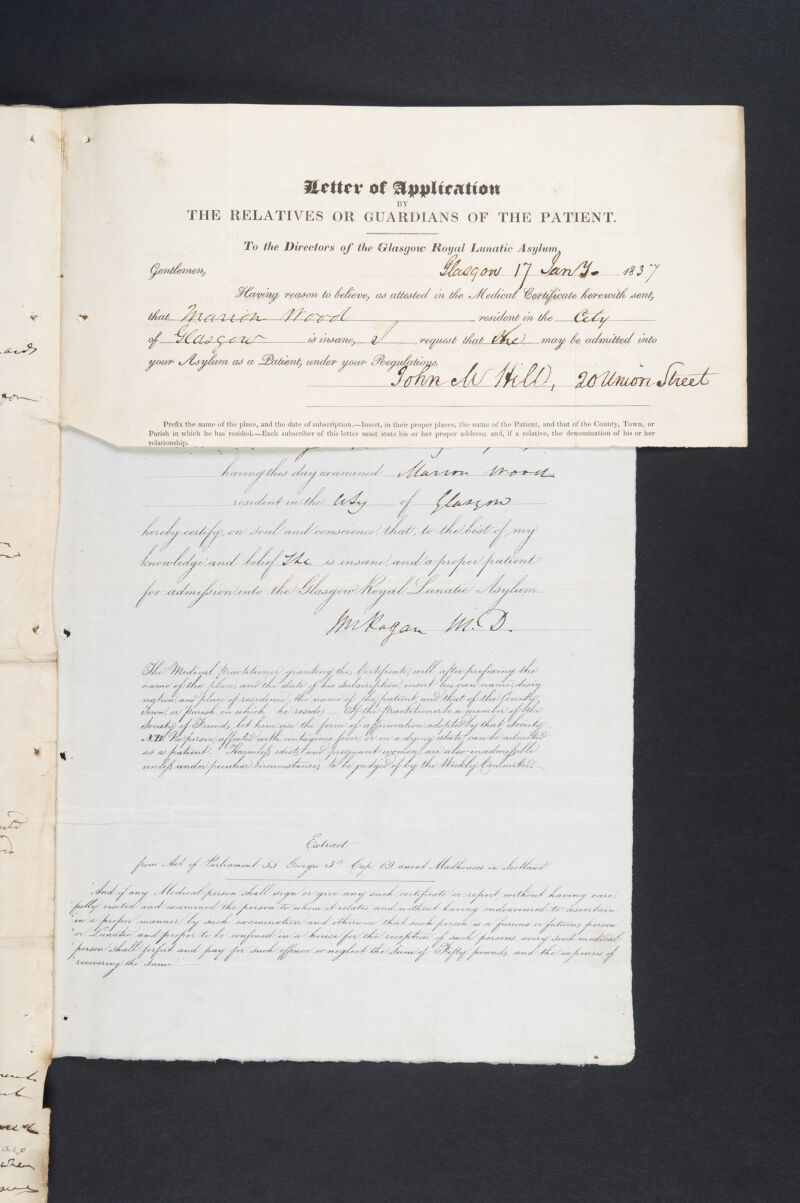 Letter of Application
BY
THE RELATIVES OR GUARDIANS OF THE PATIENT.
To the Directors of the Glasgow Royal Lunatic Asylum,
Glasgow 17 Jany. 1837
Gentlemen,
Having reason to believe, as attested in the Medical Certificate herewith sent,
that Marion Wood resident in the City
of Glasgow is insane, I request that She may be admitted into
your Asylum as a Patient, under your Regulations.
John M Hill, 20 Union Street
Prefix the name of the place, and the date of subscription.—Insert, in their proper places, the name of the Patient, and that of the County, Town, or
Parish in which he has resided.—Each subscriber of this letter must state his or her proper address; and, if a relative, the denomination of his or her
relationship.
having this day examined Marion Wood
resident in the City of Glasgow
hereby certify, on soul and conscience, that, to the best of my
knowledge and belief She is insane, and a proper patient
for admission into the Glasgow Royal Lunatic Asylum
M.D.
The Medical Practitioner granting this Certificate, will, after prefixing the
name of the place, and the date of his subscription, insert his own name, desig
nation, and place of residence, the name of the patient, and that of the County,
Town, or parish in which he resides — If the Practitioner be a member of the
Society of Friends, let him use the form of affirmation adopted by that Society —
N.B. No person affected with contagious fever, or in a dying state, can be admitted
as a patient. Harmless idiots, and pregnant women, are also inadmissible
unless under peculiar circumstances, to be judged of by the Weekly Committee.
Extract
from Act of Parliament 55 George 3d Cap 69 anent Madhouses in Scotland
"And if any Medical person shall sign or give any such certificate or report, without having care
"fully visited and examined the person to whom it relates and without having endeavoured to ascertain
"in a proper manner by such examination and otherwise that such person is a furious or fatuous person
"or Lunatic, and proper to be confined in a house for the reception of such persons, every such medical
"person shall forfeit and pay for such offence or neglect the sum of Fifty pounds and the expenses of
"recovering the same"